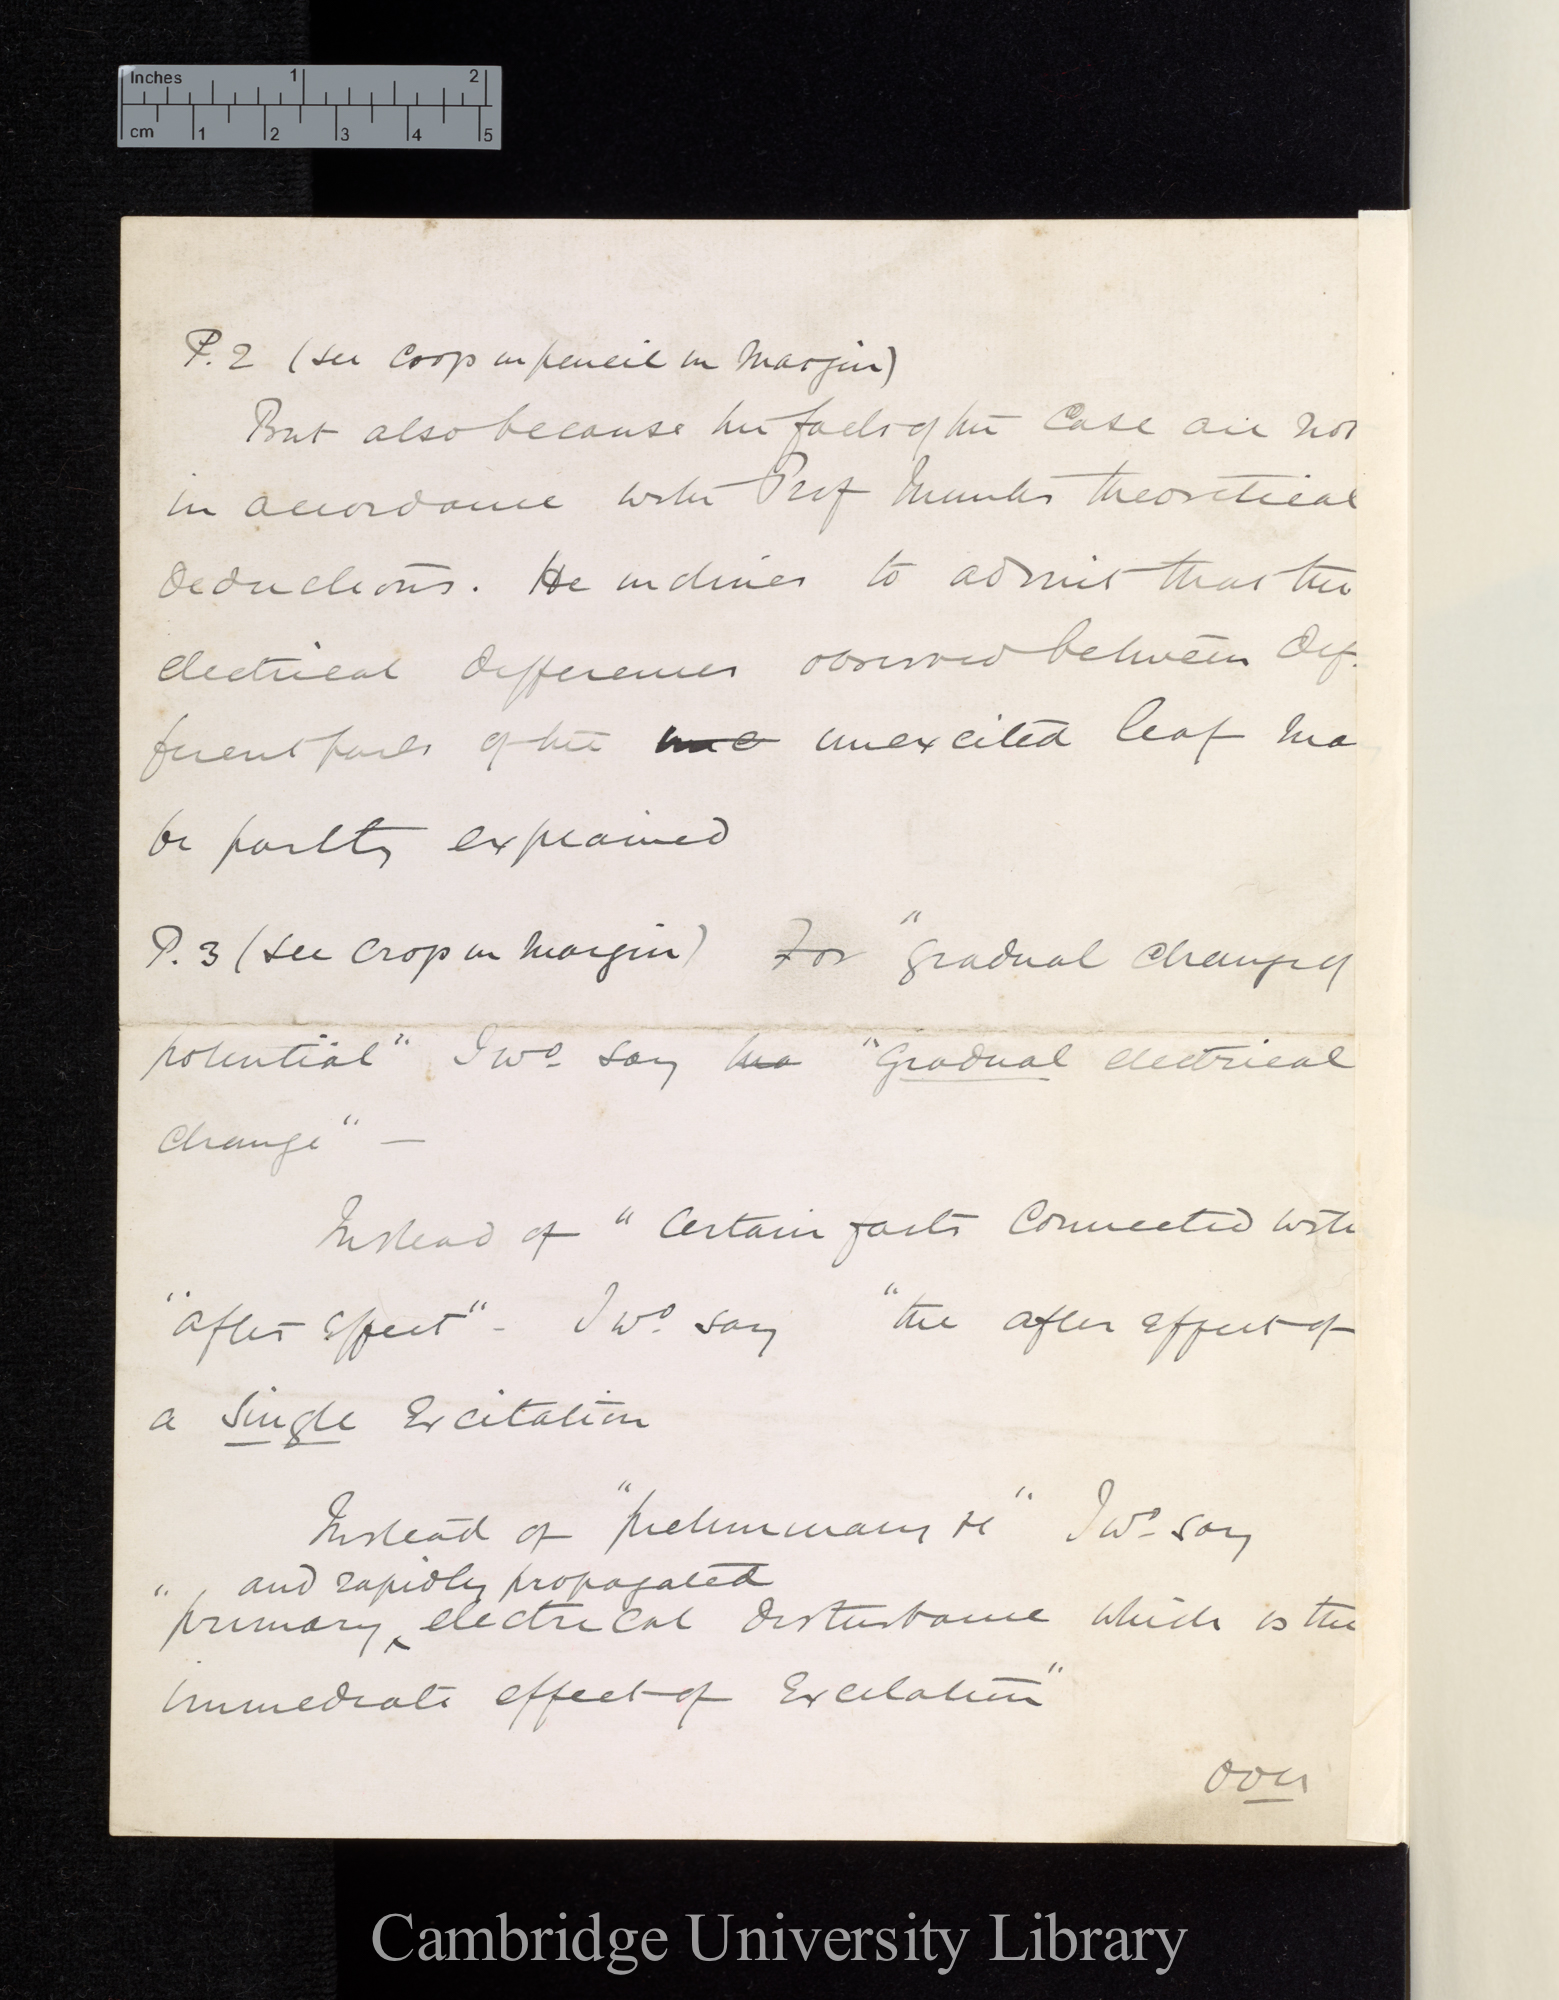 Inches 1 2
cm 1 2 3 4 5
P. 2 (see Cross in pencil in Margin)
But also because the facts of the Case are not
in accordance with Prof Munk's theoretical
deductions. He inclines to admit that the
electrical differences observed between dif-
ferent parts of the unexcited leaf ma
be partly explained
P. 3 (see Cross in Margin) For "gradual change of
potential" I wd. say "gradual electrical
change" —
Instead of "Certain facts Connected with
"after effect" - I wd. say "the after effect of
a single Excitation
Instead of "preliminary &c" I wd. say
and rapidly propagated
"primary, electrical disturbance which is the
immediate effect of Excitation"
over
Cambridge University Library